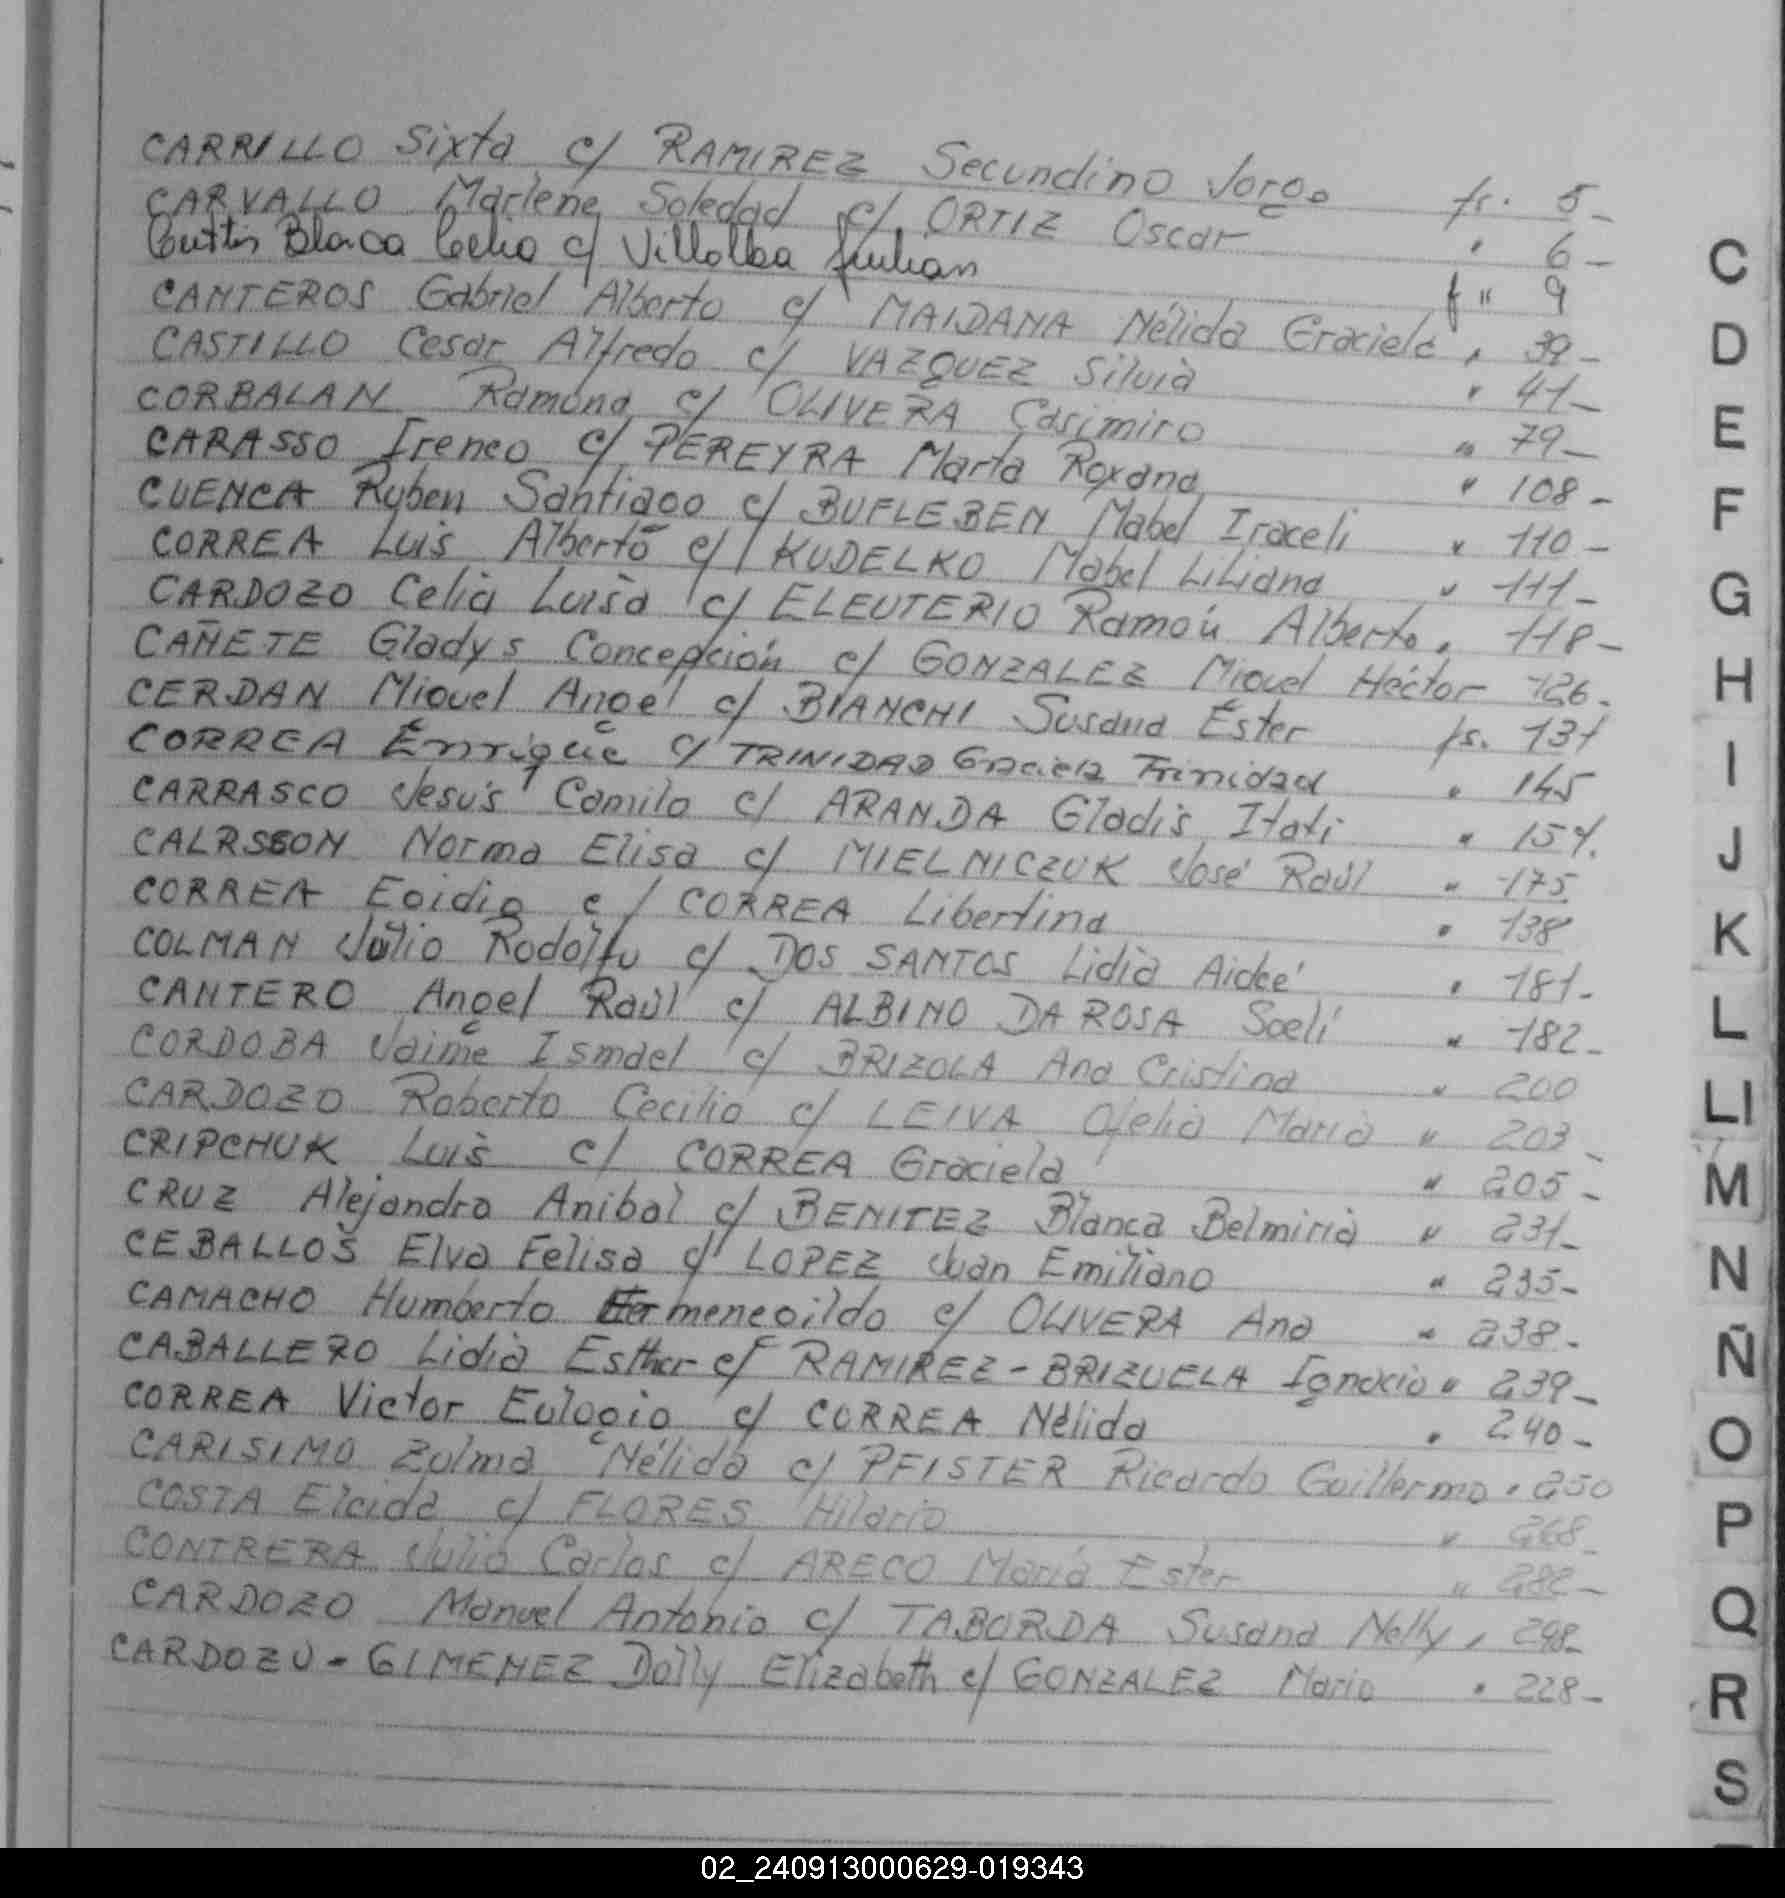 CARRILLO Sixta c/ RAMIREZ Secundino Jorge fs. 5-
CARVALLO Marlene Soledad c/ ORTIZ Oscar " 6-
Blanca Celia c/ Villalba Julian f " 9
CANTEROS Gabriel Alberto c/ MAIDANA Nélida Graciela " 39-
CASTILLO Cesar Alfredo c/ VAZQUEZ Silvia " 41-
CORBALAN Ramona c/ OLIVERA Casimiro " 79-
CARASSO Ireneo c/ PEREYRA Marta Roxana " 108-
CUENCA Ruben Santiago c/ BUFLEBEN Mabel Iraceli " 110-
CORREA Luis Alberto c/ KUDELKO Mabel Liliana " 111-
CARDOZO Celia Luisa c/ ELEUTERIO Ramón Alberto " 118-
CAÑETE Gladys Concepción c/ GONZALEZ Miguel Héctor 126.
CERDAN Miguel Angel c/ BIANCHI Susana Ester fs. 131
CORREA Enrique c/ TRINIDAD Graciela Trinidad " 145
CARRASCO Jesús Camilo c/ ARANDA Gladis Itati " 157.
CALRSSON Norma Elisa c/ MIELNICZUK José Raúl " 175
CORREA Egidio c/ CORREA Libertina " 138
COLMAN Julio Rodolfo c/ DOS SANTOS Lidia Aideé " 181-
CANTERO Angel Raúl c/ ALBINO DA ROSA Soeli " 182-
CORDOBA Jaime Ismael c/ BRIZOLA Ana Cristina " 200
CARDOZO Roberto Cecilio c/ LEIVA Ofelia Maria " 203-
CRIPCHUK Luis c/ CORREA Graciela " 205-
CRUZ Alejandro Anibal c/ BENITEZ Blanca Belmiria " 231-
CEBALLOS Elva Felisa c/ LOPEZ Juan Emiliano " 235-
CAMACHO Humberto Hermenegildo c/ OLIVERA Ana " 238-
CABALLERO Lidia Esther c/ RAMIREZ-BRIZUELA Ignacio " 239-
CORREA Victor Eulogio c/ CORREA Nélida " 240-
CARISIMO Zulma Nélida c/ PFISTER Ricardo Guillermo " 250
COSTA Elcida c/ FLORES Hilario " 268-
CONTRERA Julio Carlos c/ ARECO María Ester " 282-
CARDOZO Manuel Antonio c/ TABORDA Susana Nelly " 298-
CARDOZO-GIMENEZ Dolly Elizabeth c/ GONZALEZ Mario " 228-
C
D
E
F
G
H
I
J
K
L
LI
M
N
Ñ
O
P
Q
R
S
02_240913000629-019343